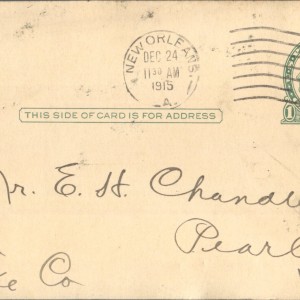 NEW ORLEANS,
DEC 24
11 30 AM
1915
LA.
1
THIS SIDE OF CARD IS FOR ADDRESS
Mr. E. H. Chandl
Pearl
Co